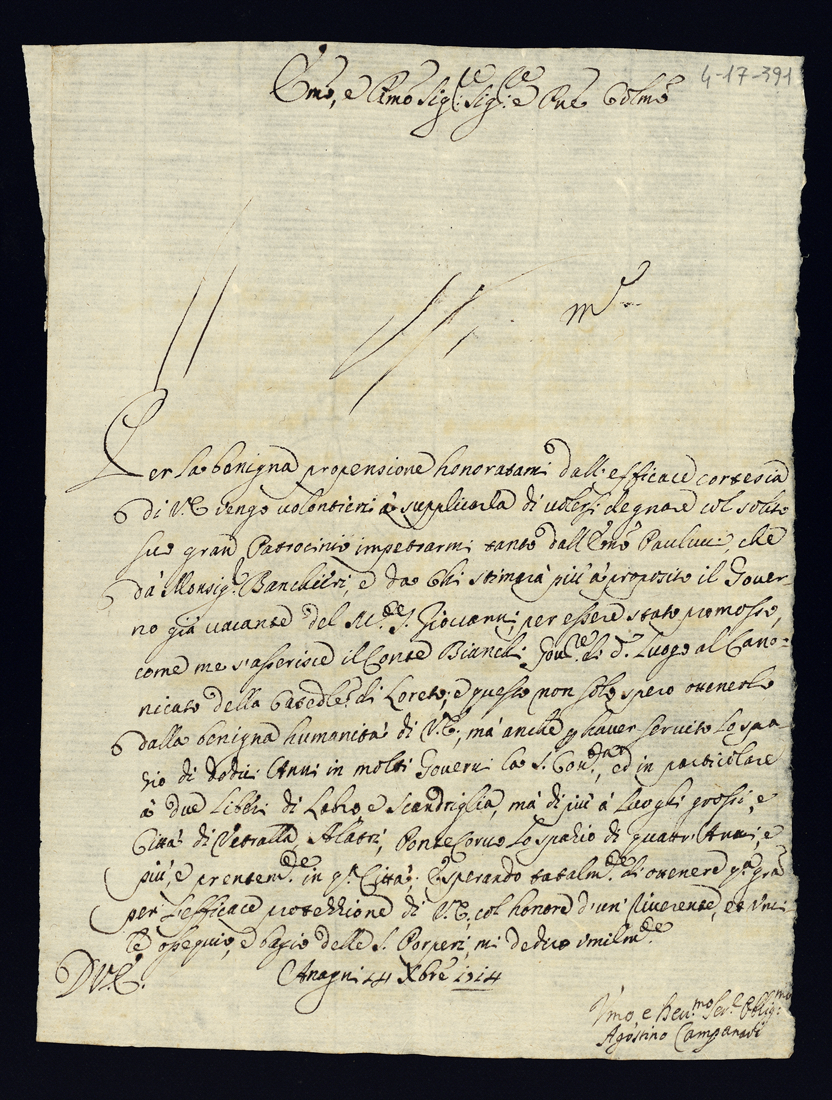 4-17-391
Emo, e Rmo Sig:re Sig:re e Pne Colmo
Per la benigna propensione honoratami dall'efficace cortesia
di V.E. vengo volontieri à supplicarla di volersi degnare col solito
suo gran Patrocinio impetrarmi tanto dall'Emo Paulucci, che
dà Monsig.r Banchieri, e da Chi stimerà più à proposito il Gover-
no già vacante del M.te S. Giovanni, per essere stato promosso,
come me s'asserisce il Conte Bianchi Gov.re di d.o Luogo al Cano-
nicato della Catedle di Loreto, e questo non solo spero ottenerlo
dalla benigna humanità di V.E., mà anche p haver servito lo spa-
tio di dodici Anni in molti Governi la S. Con.
, ed in particolare
à due Libri di Labro e Scandriglia, mà di più à Luoghi grossi, e
Città di Vetralla, Alatri, Pontecorvo lo spazio di quattr'Anni, e
più, e
in q.ta Città, e sperando totalm.te di ottenere q.a gra
per l'efficace protezzione di V.E. col honore d'un riverente, et
ossequio, e bagio delle S. Porpori, mi dedico umilm.te
D.V.E.
Anagni 14 Xbre 1714
Umo e Rev.mo Ser.e Oblig:mo
Agostino Campanari